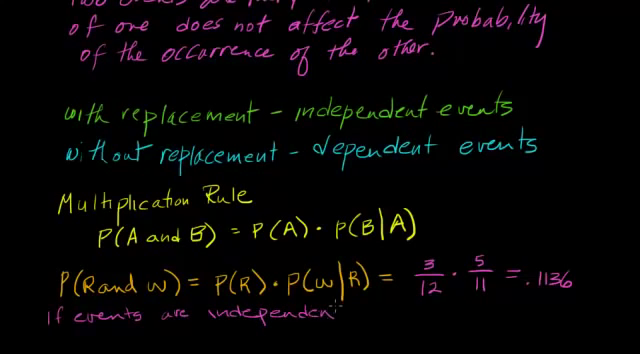 of one does not affect the probability
of the occurrence of the other.
with replacement - independent events
without replacement - dependent events
Multiplication Rule
P(A and B) = P(A) · P(B|A)
P(R and W) = P(R) · P(W|R) = 3/12 · 5/11 = .1136
If events are independen